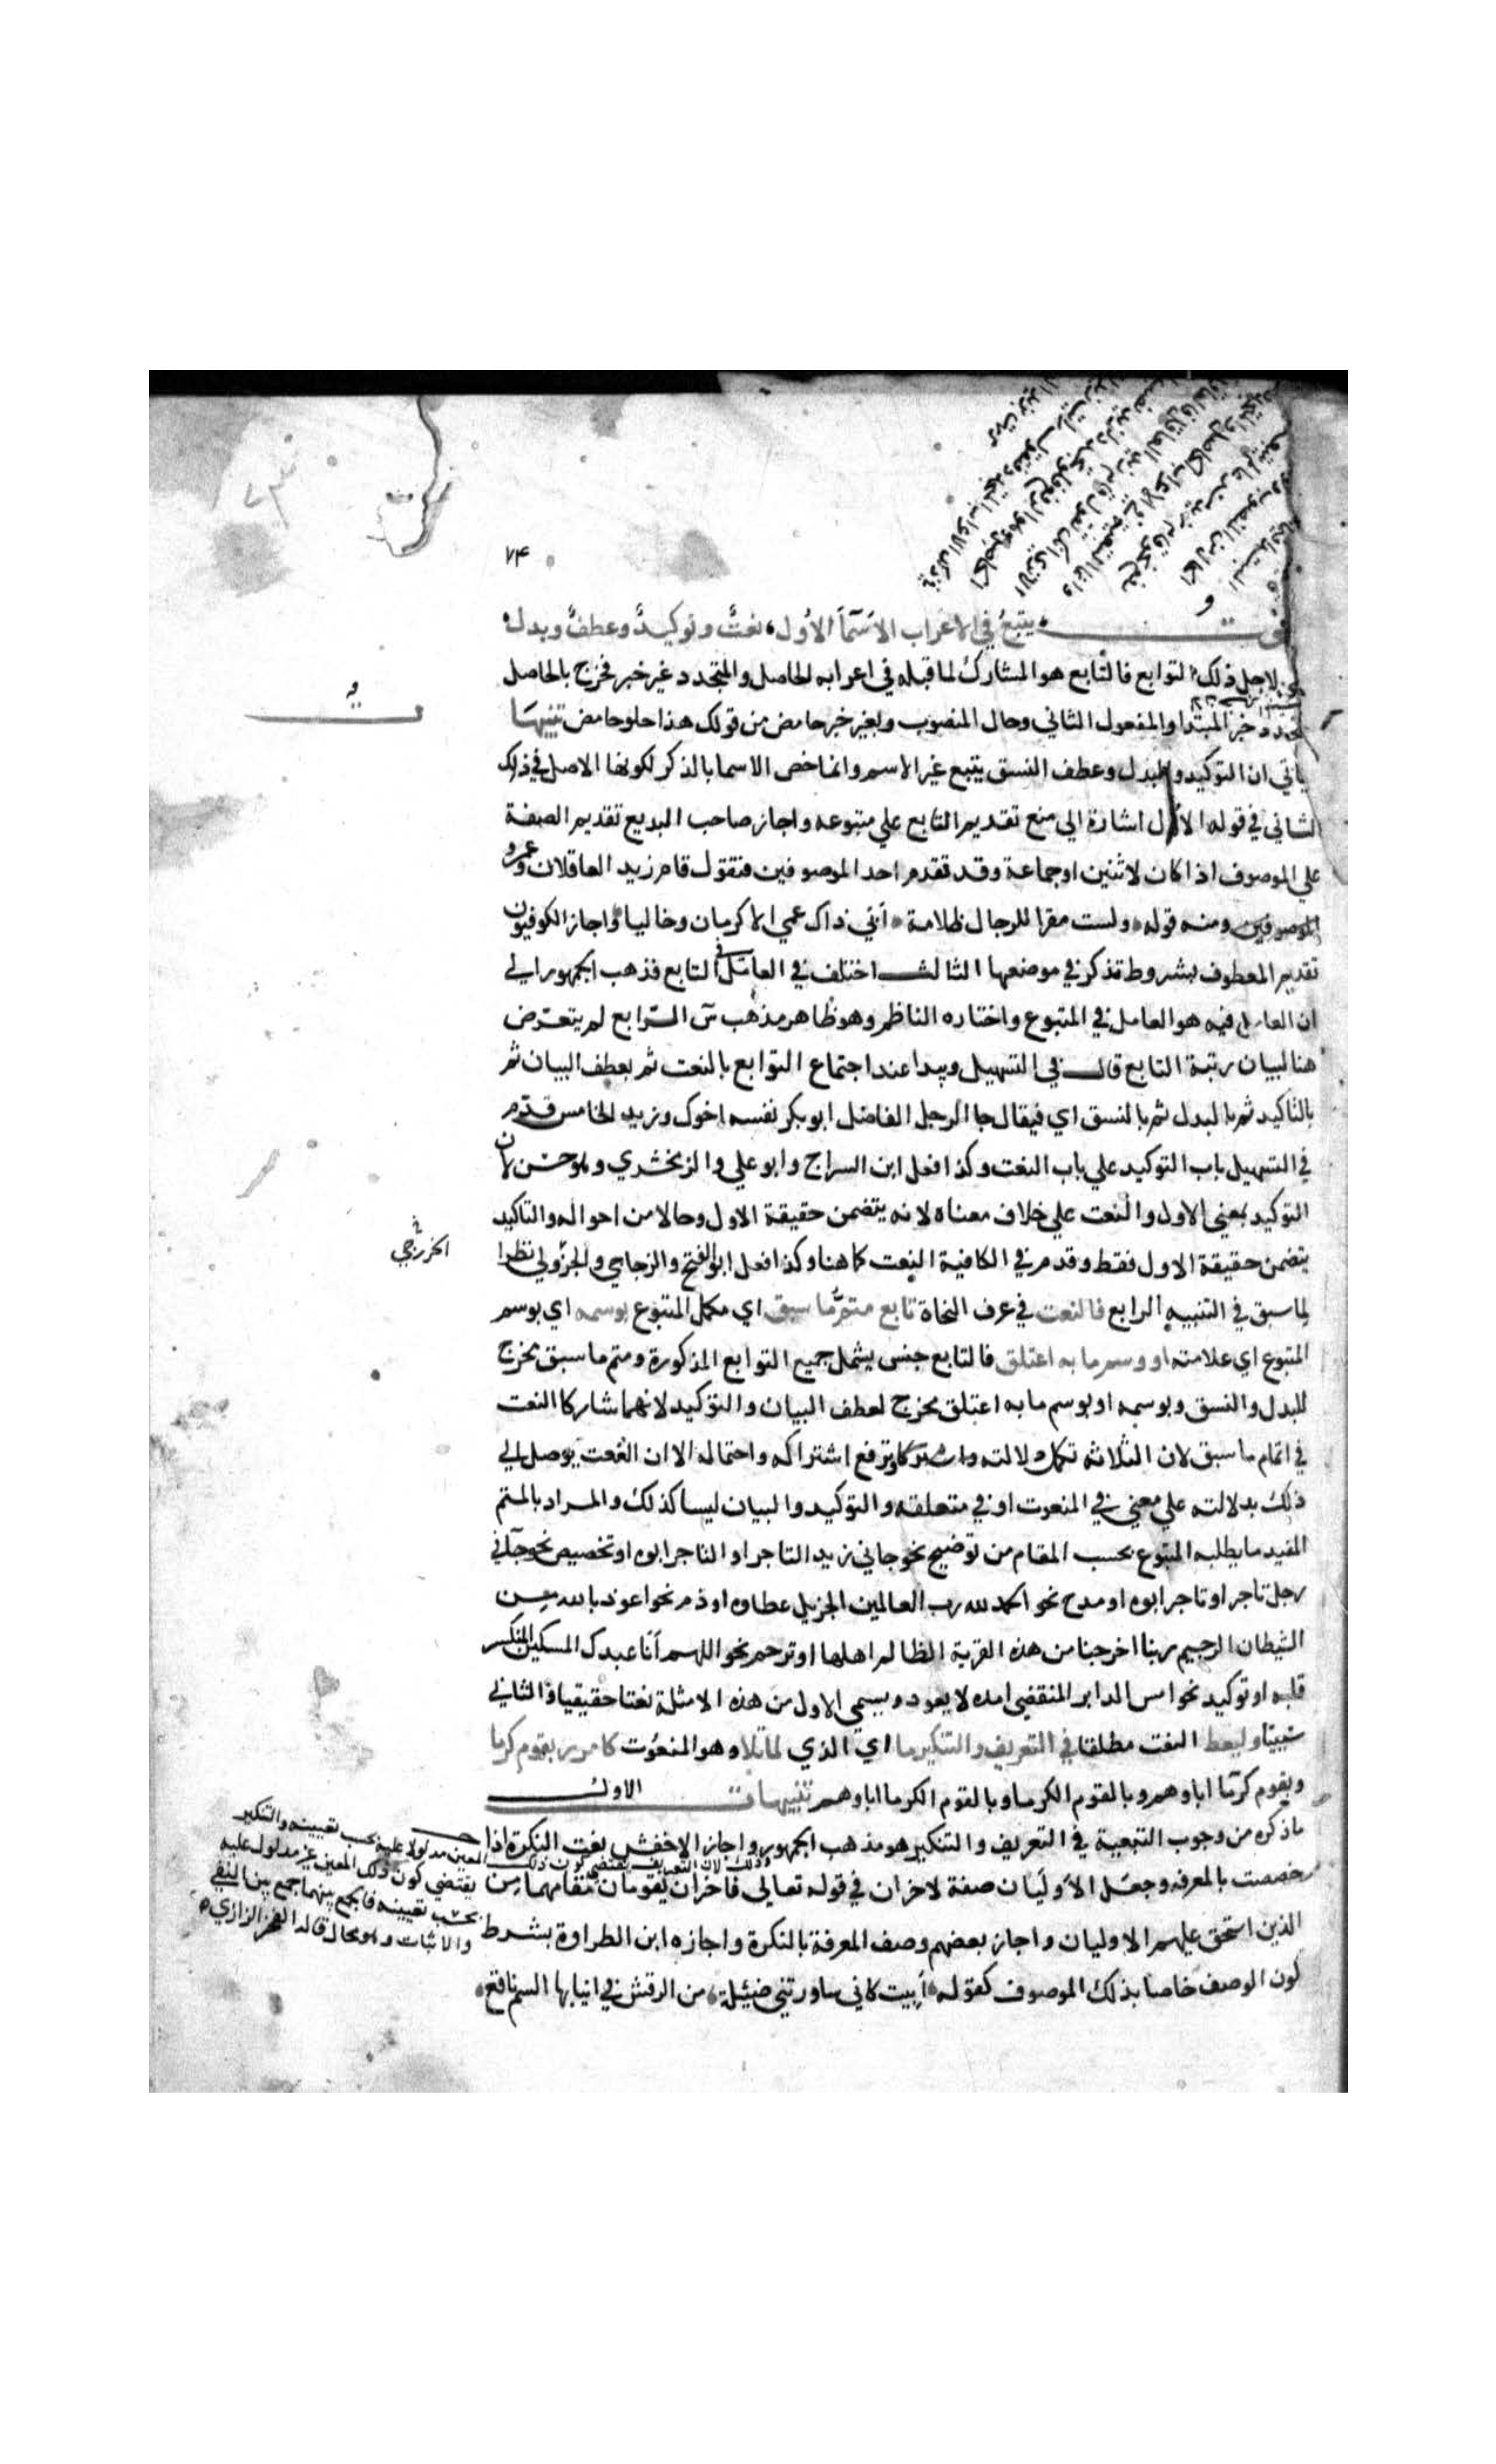 ٧۴
يتبع في الاعراب الاسماء الاول ۰ نعت وتوكيد وعطف وبدل ۰
لاجل ذلك التوابع فالتابع هو المشارك لما قبله في اعرابه الحاصل والمتجدد غير خبر فخرج بالحاصل
والمتجدد خبر المبتدا والمفعول الثاني وحال المنصوب وبغير خبر حامض من قولك هذا حلو حامض تنبيهات
ياتي ان التوكيد والبدل وعطف النسق يتبع غير الاسم وانما خص الاسما بالذكر لكونها الاصل في ذلك
الثاني في قوله الاول اشارة الي منع تقديم التابع علي متبوعه واجاز صاحب البديع تقديم الصفة
علي الموصوف اذا كان لاثنين او جماعة وقد تقدم احد الموصوفين فتقول قام زيد العاقلان وعمرو
الموصوفين ومنه قوله ۰ ولست مقرا للرجال ظلامة ۰ أبي ذاك عمي الاكرمان وخاليا ۰ واجاز الكوفيون
تقديم المعطوف بشروط تذكر في موضعها الثالث اختلف في العامل في التابع فذهب الجمهور الي
ان العامل فيه هو العامل في المتبوع واختاره الناظم وهو ظاهر مذهب س الرابع لم يتعرض
هنا لبيان رتبة التابع قال في التسهيل ويبدا عند اجتماع التوابع بالنعت ثم بعطف البيان ثم
بالتاكيد ثم بالبدل ثم بالنسق اي فيقال جا الرجل الفاضل ابو بكر نفسه اخوك وزيد الخامس قدم
في التسهيل باب التوكيد علي باب النعت وكذا فعل ابن السراج وابو علي والزمخشري وهو حسن لان
التوكيد بمعني الاول والنعت علي خلاف معناه لانه يتضمن حقيقة الاول وحالا من احواله والتاكيد
يتضمن حقيقة الاول فقط وقدم في الكافية النعت كما هنا وكذا فعل ابو الفتح والزجاجي والجزولي نظرا
لما سبق في التنبيه الرابع فالنعت في عرف النحاة تابع متم ما سبق اي مكمل المتبوع بوسمه اي بوسم
المتبوع اي علامته او وسم ما به اعتلق فالتابع جنس يشمل جميع التوابع المذكورة ومتم ما سبق مخرج
للبدل والنسق وبوسمه او بوسم ما به اعتلق مخرج لعطف البيان والتوكيد لانهما شاركا النعت
في اتمام ما سبق لان الثلاثه تكمل دلالته وترفع اشتراكه واحتماله الا ان النعت يوصل الي
ذلك بدلالته علي معني في المنعوت او في متعلقه والتوكيد والبيان ليسا كذلك والمراد بالمتم
المفيد ما يطلبه المتبوع بحسب المقام من توضيح نحو جاني زيد التاجر او التاجر ابوه او تخصيص نحو جاني
رجل تاجر او تاجر ابوه او مدح نحو الحمد لله رب العالمين الجزيل عطاوه او ذم نحو اعوذ بالله من
الشيطان الرجيم ربنا اخرجنا من هذه القرية الظالم اهلها او ترحم نحو اللهم أنا عبدك المسكين المنكسر
قلبه او توكيد نحو امس الدابر المنقضي امده لا يعود ويسمي الاول من هذه الامثلة نعتا حقيقيا والثاني
سببيا وليعط النعت مطلقا في التعريف والتنكير ما اي الذي لما تلا وهو المنعوت كامرر بقوم كرما
وبقوم كرما اباوهم وبالقوم الكرما وبالقوم الكرما اباوهم تنبيهات الاول
ما ذكره من وجوب التبعية في التعريف والتنكير هو مذهب الجمهور واجاز الاخفش نعت النكرة اذا
خصصت بالمعرفه وجعل الاوليان صفة لاخران في قوله تعالي فاخران يقومان مقامهما من
الذين استحق عليهم الاوليان واجاز بعضهم وصف المعرفة بالنكرة واجازه ابن الطراوة بشرط
كون الوصف خاصا بذلك الموصوف كقوله ۰ أبيت كاني ساورتني ضئيلة ۰ من الرقش في انيابها السم ناقع ۰
الخزرجي
وذلك لان التعريف يقتضي كون ذلك
المعين مدلولا عليه بحسب تعيينه والتنكير
يقتضي كون ذلك المعين غير مدلول عليه
بحسب تعيينه فالجمع بينهما جمع بين النفي
والاثبات وهو محال قاله الفخر الرازي